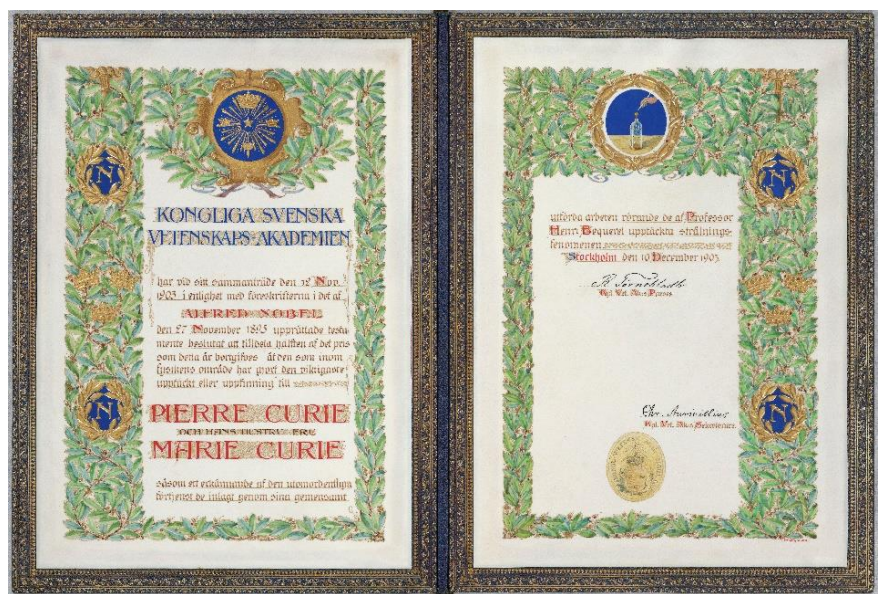 N
KONGLIGA SVENSKA
VETENSKAPS-AKADEMIEN
har vid sitt sammanträde den 12 Nov.
1903 i enlighet med föreskrifterna i det af
ALFRED NOBEL
den 27 November 1895 upprättade testa-
mente beslutat att tilldela hälften af det pris
som detta år bortgifves åt den som inom
fysikens område har gjort den viktigaste
upptäckt eller uppfinning till
PIERRE CURIE
OCH HANS HUSTRU FRU
MARIE CURIE
såsom ett erkännande af den utomordentliga
förtjenst de inlagt genom sina gemensamt
N
N
utförda arbeten rörande de af Professor
Henri Bequerel upptäckta strålnings-
fenomenen
Stockholm den 10 December 1903.
Törnebladh
Kgl. Vet. Akns Præses
Chr. Aurivillius
Kgl. Vet. Akns Sekreterare
N